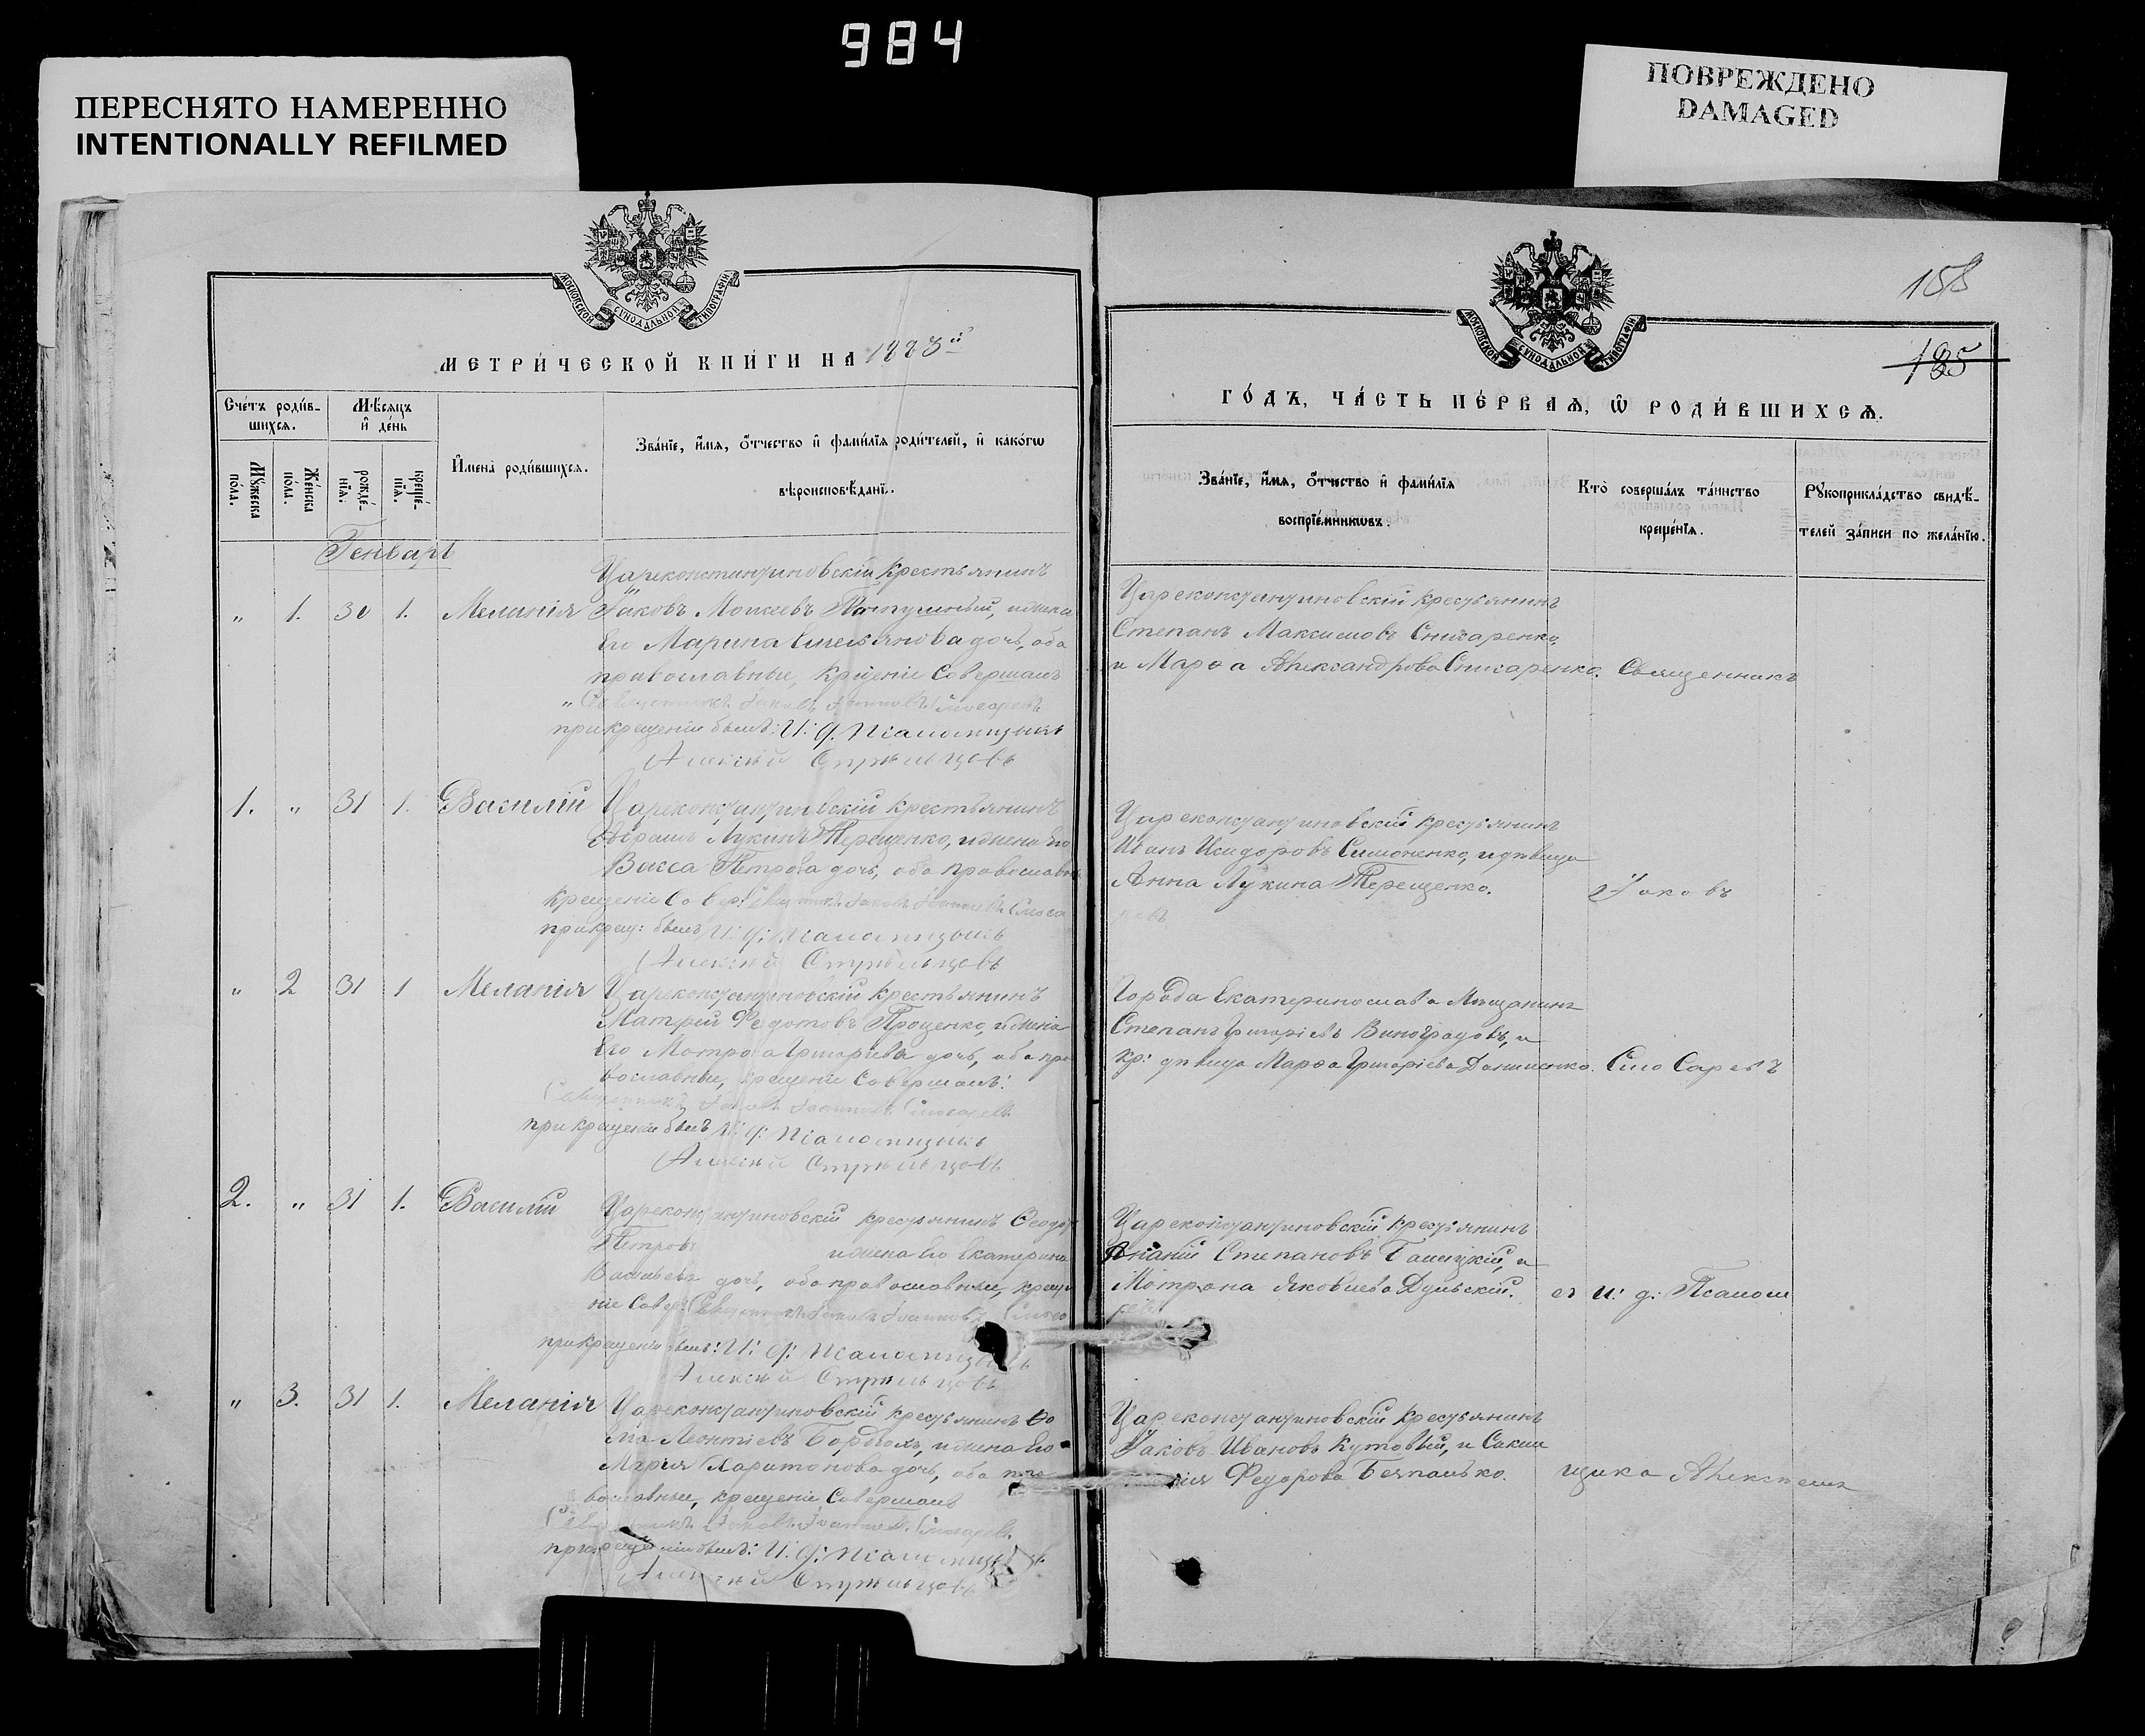 984
ПЕРЕСНЯТО НАМЕРЕННО
INTENTIONALLY REFILMED
ПОВРЕЖДЕНО
DAMAGED
МОСКОВСКОЙ СУНОДАЛЬНОЙ ТИПОГРАФІИ
МЕТРИ́ЧЕСКОЙ КНИ́ГИ НА 1883й
Сче́тъ роди́в-
шихсѧ.
Мѣ́сяцъ
и҆ де́нь
Мꙋ́жеска
по́ла.
Же́нска
по́ла.
рожде́-
нїѧ.
креще́-
нїѧ.
И҆мена̀ роди́вшихсѧ.
Зва́нїе, и҆́мѧ, ѻ҆́тчество и҆ фами́лїѧ роди́телей, и҆ како́гѡ
вѣроисповѣ́данїѧ.
Генварь
Цареконстантиновскій крестьянинъ
„ 1. 30 1. Меланія Іаковъ Моисеевъ и жена
Его Марина Емельянова дочь, оба
православные, Крщеніе Совершалъ
Священникъ Іаковъ Іоанновъ Слюсаревъ
при крещеніи былъ: И. д. псаломщика
Алексѣй Стрѣльцовъ
1. „ 31 1. Василій Цареконстантиновскій крестьянинъ
Абрамъ Лукинъ Терещенко, и жена Его
Васса Петрова дочь, оба православн
крещеніе Совер: Священникъ Іаковъ Іоанновъ Слюса
при крещ: былъ И: д: псаломщика
Алексѣй Стрѣльцовъ
„ 2 31 1 Меланія Цареконстантиновскій крестьянинъ
Матфей Федотовъ Проценко, и жена
Его Мотрона Григоріева дочь, оба пра
вославные, крещеніе Совершалъ:
Священникъ Іаковъ Іоанновъ Слюсаревъ
при крещеніи былъ И: д: псаломщика
Алексѣй Стрѣльцовъ
2. „ 31 1. Василій Цареконстантиновскій крестьянинъ Феодоръ
Петровъ и жена Его Екатерина
Васильева дочь, оба православные, креще
ніе Совер: Священникъ Іаковъ Іоанновъ Слюса
при крещеніи былъ: И: д: псаломщика
Алексѣй Стрѣльцовъ
„ 3. 31 1. Меланія Цареконстантиновскій крестьянинъ Ѳо
ма Леонтіевъ и жена Его
Марія Харитонова дочь, оба пра
вославные, крещеніе Совершалъ
Священникъ Іаковъ Іоанновъ Слюсаревъ
при крещеніи былъ: И. д: псаломщика
Алексѣй Стрѣльцовъ
158
185
МОСКОВСКОЙ СУНОДАЛЬНОЙ ТИПОГРАФІИ
ГО́ДЪ, ЧА́СТЬ ПЕ́РВАѦ, Ѽ РОДИ́ВШИХСѦ.
Зва́нїе, и҆́мѧ, ѻ҆́тчество и҆ фами́лїѧ
воспрїе́мникѡвъ.
Кто̀ соверша́лъ та́инство
креще́нїѧ.
Рꙋкоприкла́дство свидѣ́-
телей за́писи по жела́нїю.
Цареконстантиновскій крестьянинъ
Степанъ Максимовъ Снисаренко,
и Марѳа Александрова Снисаренко. Священникъ
Цареконстантиновскій крестьянинъ
Иванъ Исидоровъ Симоненко, и дѣвица
Анна Лукина Терещенко. Іаковъ
ревъ
Города Екатеринослава Мѣщанинъ
Степанъ Григоріевъ Виноградовъ, и
кр: дѣвица Марѳа Григоріева Даниленко. Слюсаревъ
Цареконстантиновскій крестьянинъ
Ананій Степановъ и
Мотрона Яковлева Дульскій. съ И: д: Псалом
ревъ
Цареконстантиновскій крестьянинъ
Іаковъ Ивановъ Кутовый, и
Федорова щика